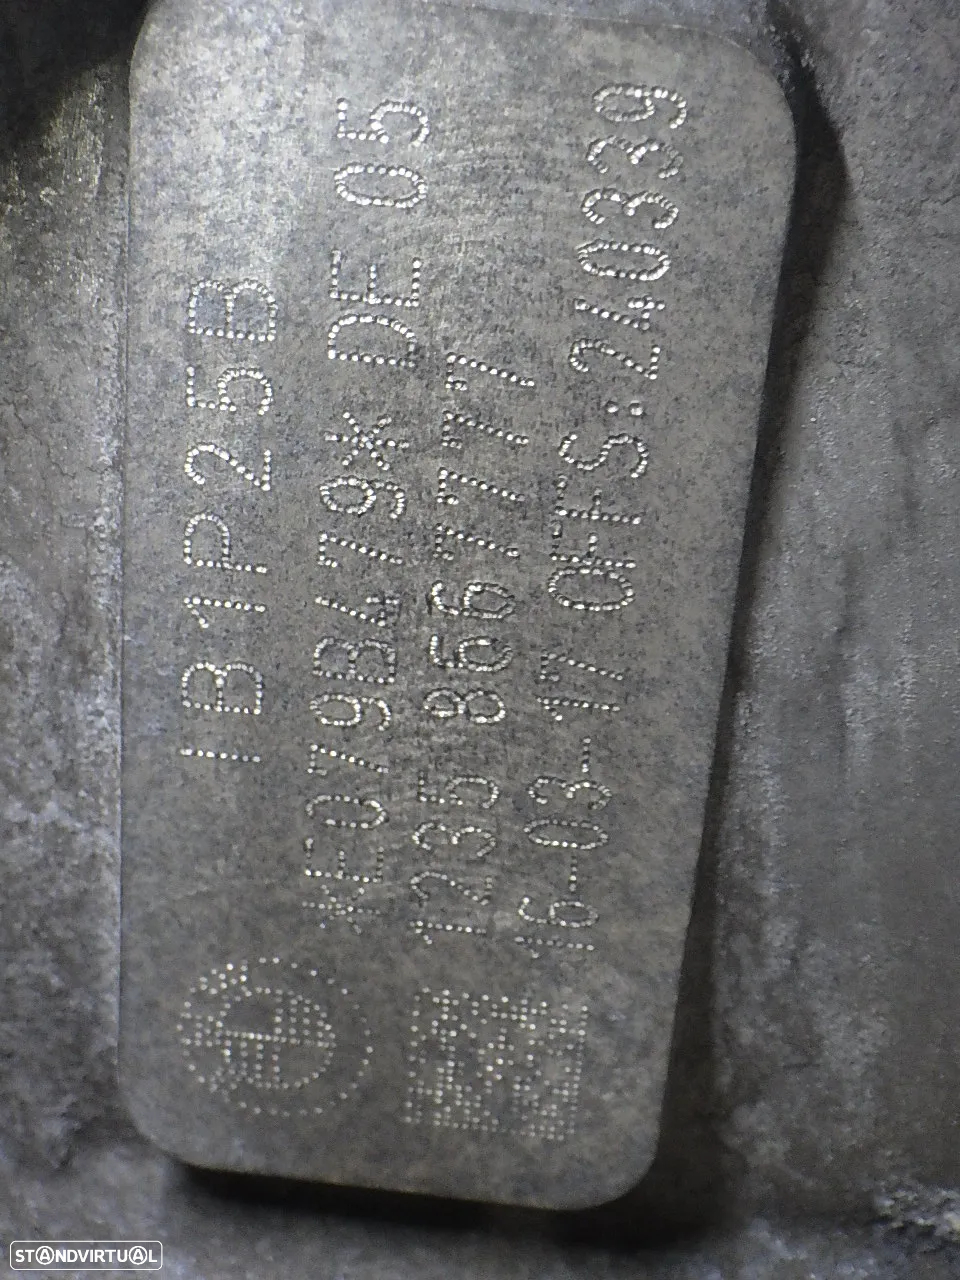 IB1P25B
*E079B479* DE 05
1235 8667777
16-03-17 OFFS:240339
STANDVIRTUAL